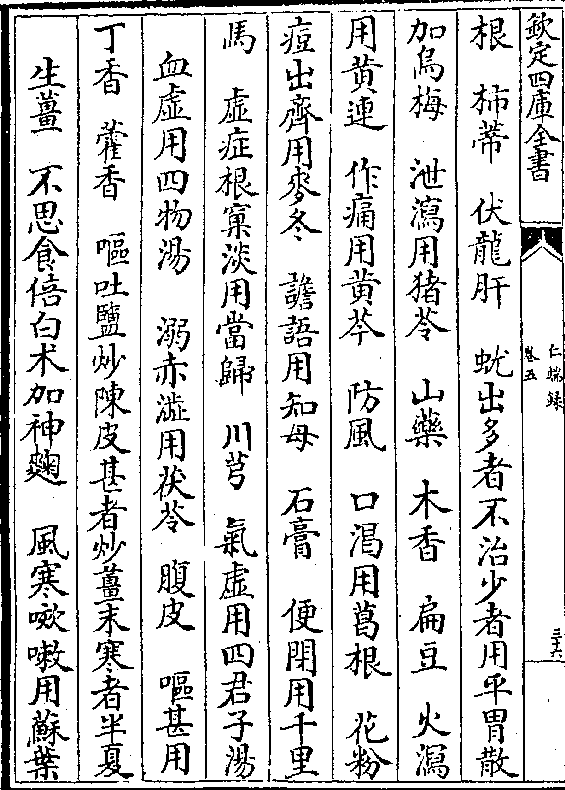 欽定四庫全書
仁端録
卷五
三六
根　柿蒂　伏龍肝　蚘出多者不治少者用平胃散
加烏梅　泄瀉用猪苓　山藥　木香　扁豆　火瀉
用黄連　作痛用黄芩　防風　口渴用葛根　花粉
痘出齊用麥冬　譫語用知母　石膏　便閉用千里
馬　虛症根窠淡用當歸　川芎　氣虛用四君子湯
血虛用四物湯　溺赤澁用茯苓　腹皮　嘔甚用
丁香　藿香　嘔吐鹽炒陳皮甚者炒薑末寒者半夏
生薑　不思食倍白术加神麯　風寒嗽嗽用蘇葉